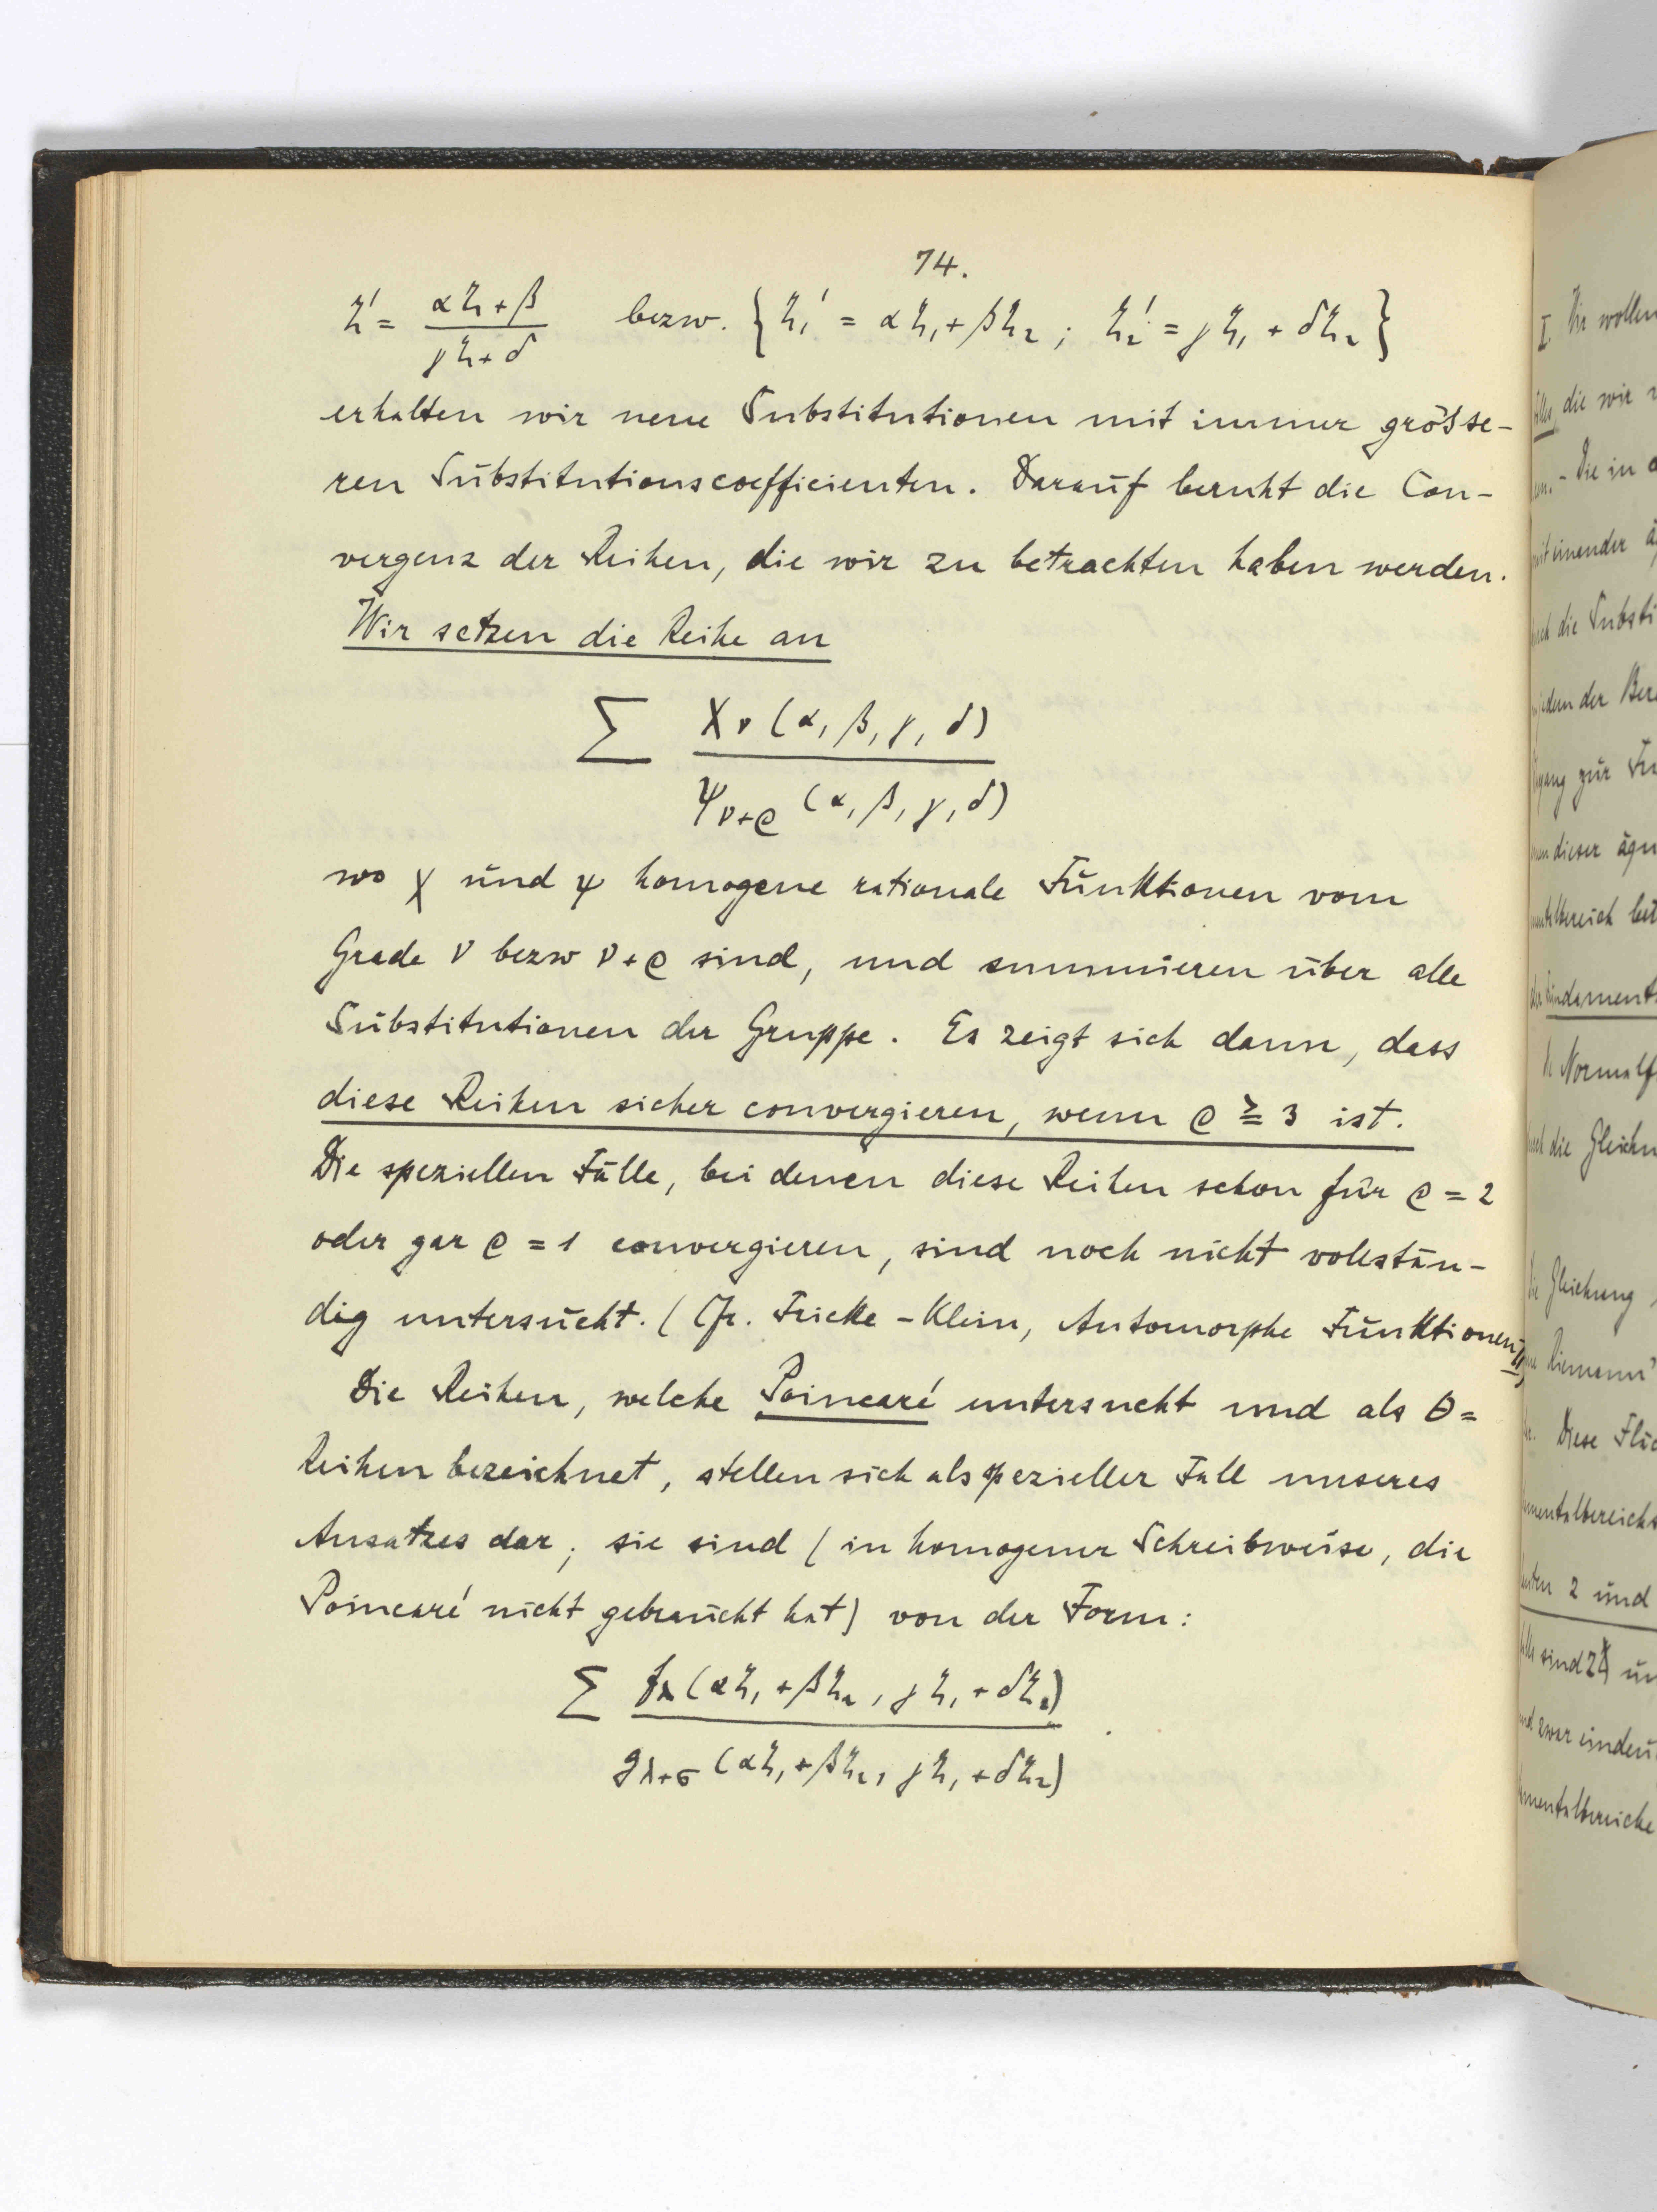 74.
ζ' = (αζ + β)/(γζ + δ) bezw. {ζ₁' = αζ₁ + βζ₂ ; ζ₂' = γζ₁ + δζ₂}
erhalten wir neue Substitutionen mit immer grösse-
ren Substitutionscoefficienten. Darauf beruht die Con-
vergenz der Reihen, die wir zu betrachten haben werden.
Wir setzen die Reihe an
Σ χ_ν (α, β, γ, δ)
ψ_ν+ϱ (α, β, γ, δ)
wo χ und ψ homogene rationale Funktionen vom
Grade ν bezw ν+ϱ sind, und summieren über alle
Substitutionen der Gruppe. Es zeigt sich dann, dass
diese Reihen sicher convergieren, wenn ϱ ≧ 3 ist.
Die speziellen Fälle, bei denen diese Reihen schon für ϱ = 2
oder gar ϱ = 1 convergieren, sind noch nicht vollstän-
dig untersucht. (Cfr. Fricke-Klein, Automorphe Funktionen II)
Die Reihen, welche Poincaré untersucht und als Θ=
Reihen bezeichnet, stellen sich als spezieller Fall unseres
Ansatzes dar; sie sind (in homogener Schreibweise, die
Poincaré nicht gebraucht hat) von der Form:
Σ f_λ (αζ₁ + βζ₂, γζ₁ + δζ₂)
g_λ+σ (αζ₁ + βζ₂, γζ₁ + δζ₂)
I. Wir wollen
die wir
Die in
miteinander
die Substi
jedem der Ber
zur Fu
dieser äqu
Fundament
Normalf
die Gleich
Gleichung
Riemann
Diese Flä
mentalbereichs
2 und
sind
und zwar eindeu
mentalbereiche